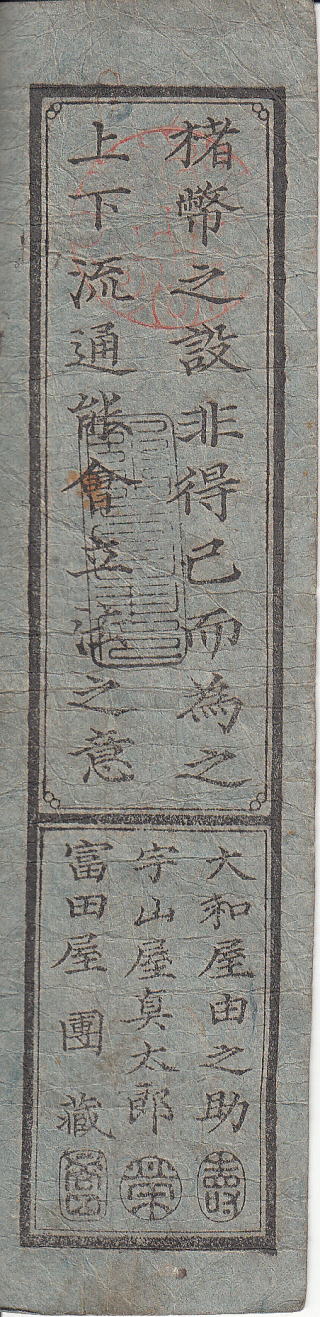 楮幣之設非得已而為之
上下流通能會立法之意
大和屋由之助
宇山屋真太郎
富田屋團藏